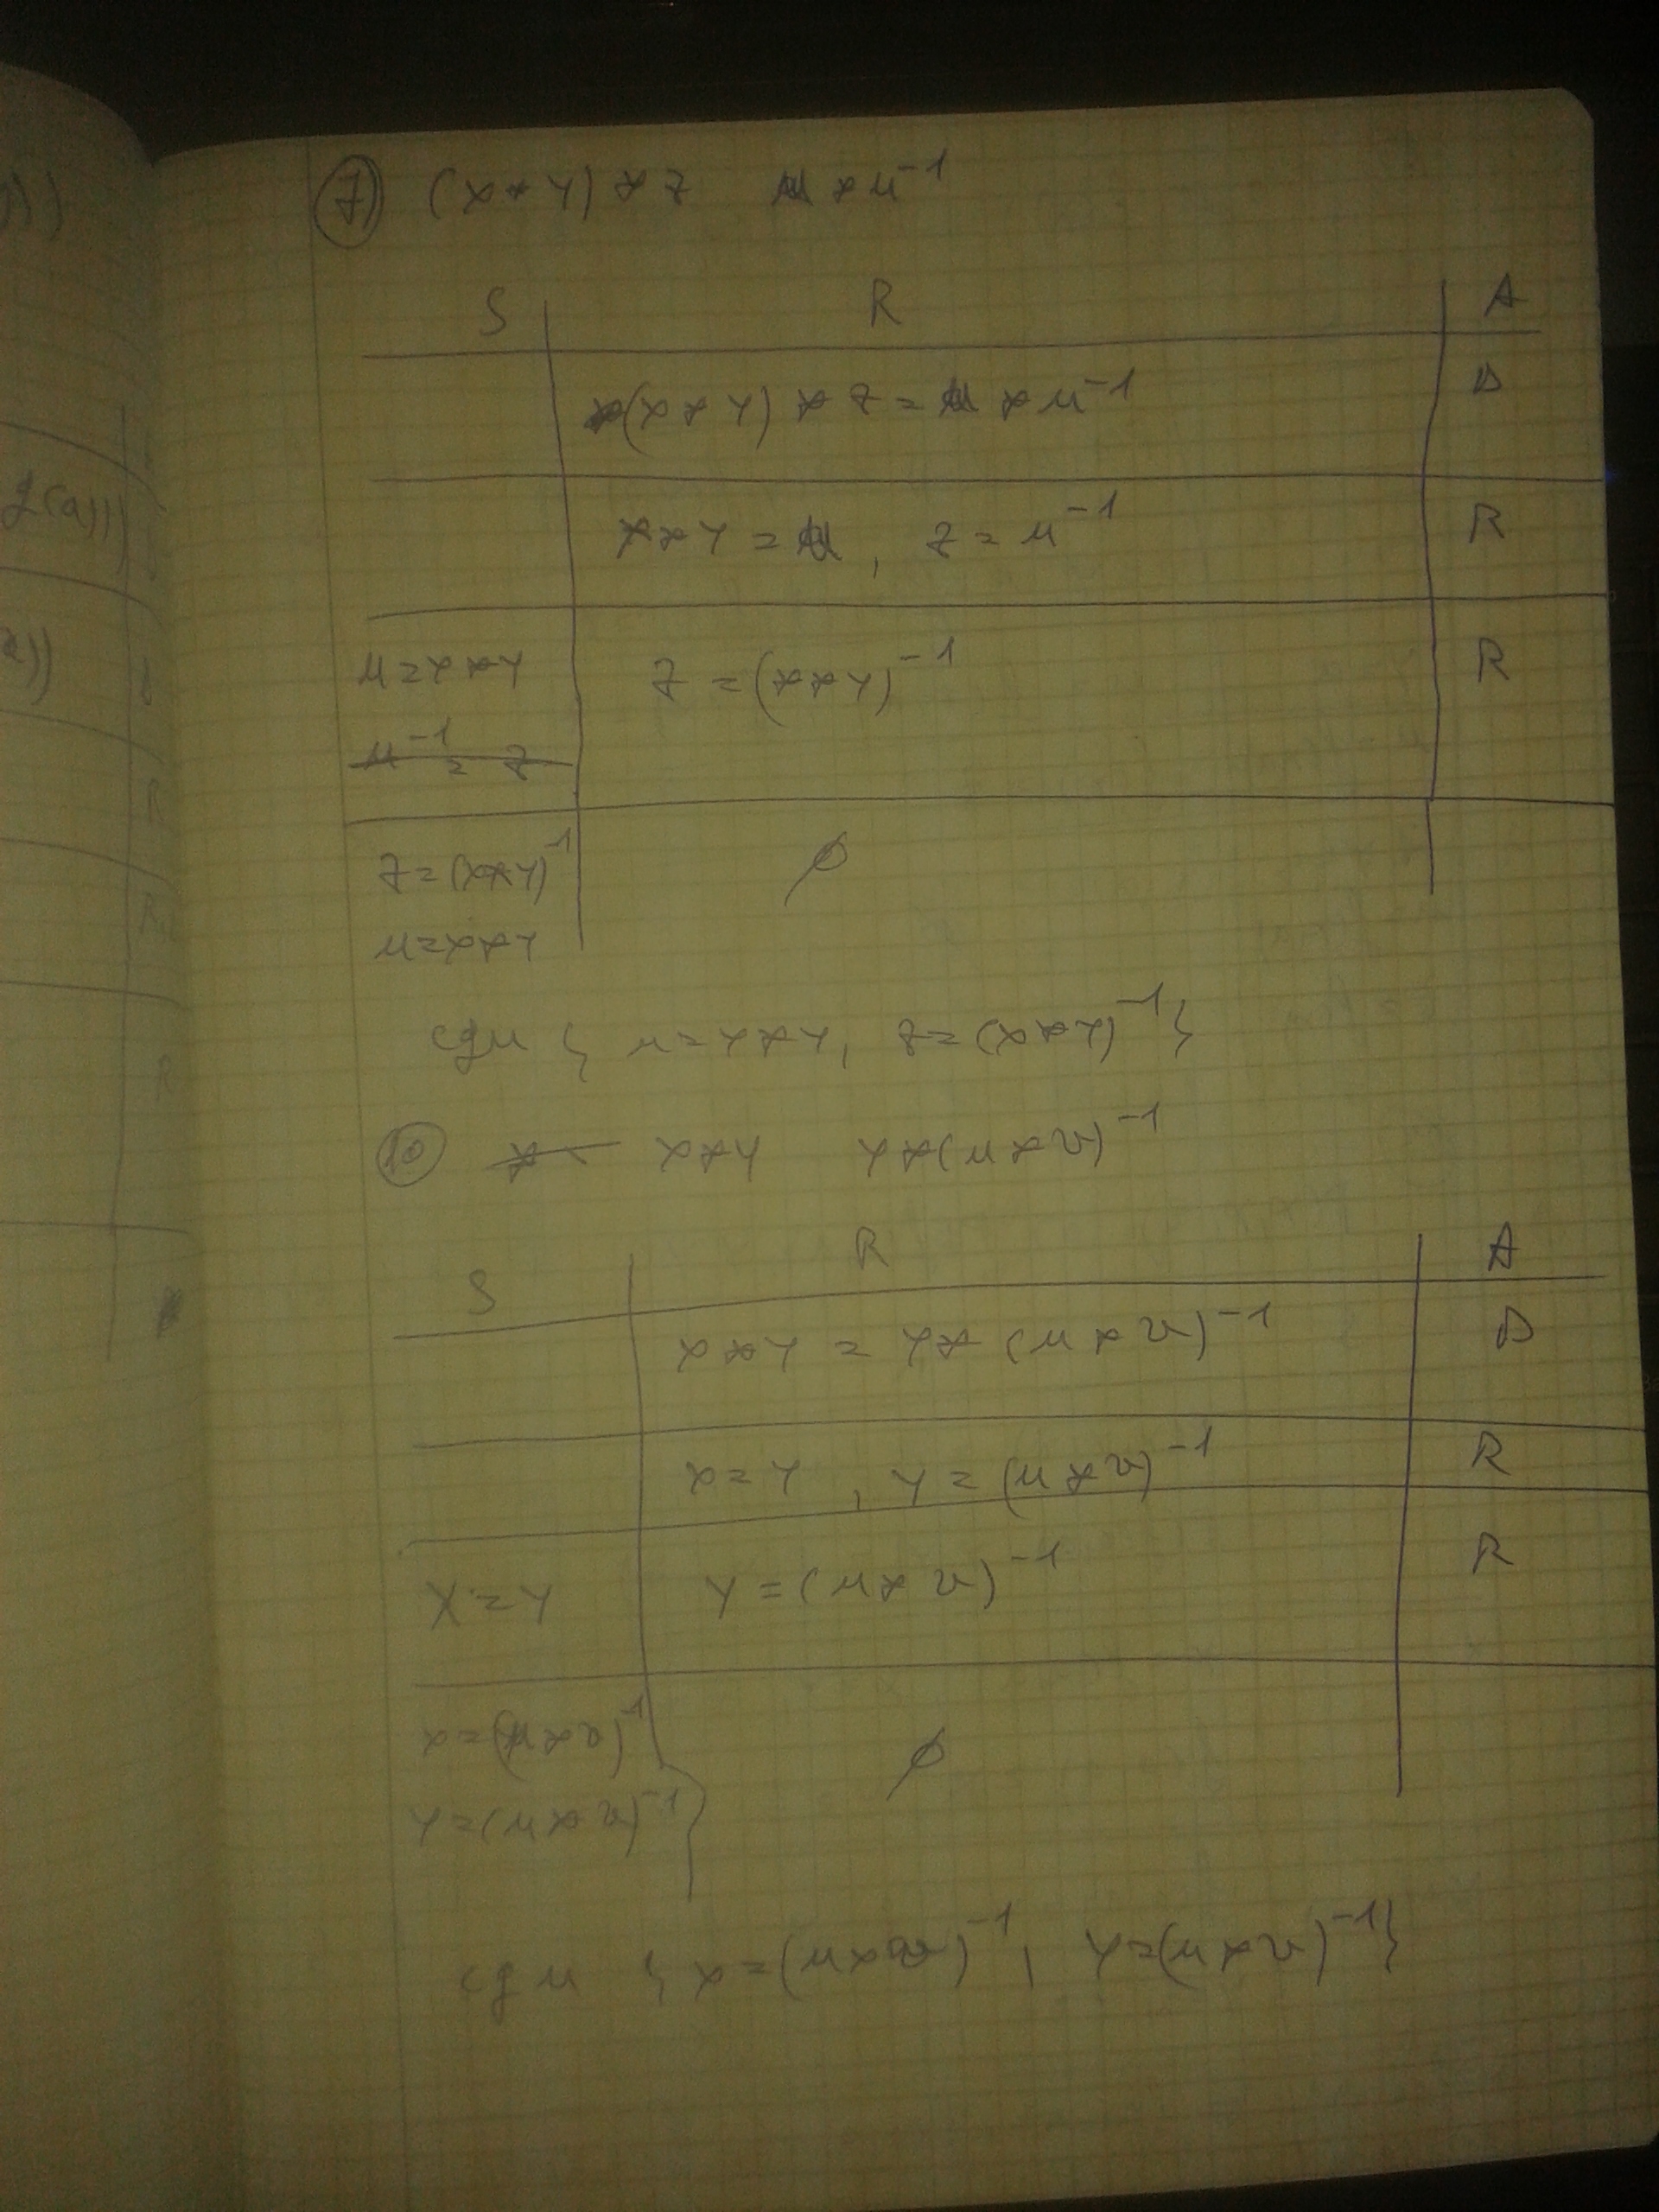 ⑦ (x * y) * z u * u⁻¹
S R A
(x * y) * z = u * u⁻¹ D
x * y = u, z = u⁻¹ R
u = x * y z = (x * y)⁻¹ R
u⁻¹ = z
z = (x * y)⁻¹ ∅
u = x * y
cgu { u = x * y, z = (x * y)⁻¹ }
⑩ x * y y * (u * v)⁻¹
S R A
x * y = y * (u * v)⁻¹ D
x = y, y = (u * v)⁻¹ R
x = y y = (u * v)⁻¹ R
x = (u * v)⁻¹ ∅
y = (u * v)⁻¹
cgu { x = (u * v)⁻¹, y = (u * v)⁻¹ }